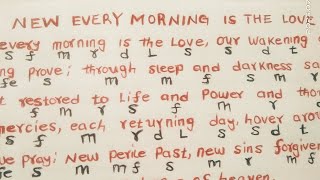 NEW EVERY MORNING IS THE LOVE
every morning is the Love, our wakening
s f m r d L s s d t
ng prove; through sleep and darkness sa
fe s m m f m
t restored to Life and Power and
f m r s f m r
mercies, each returning day, hover
m r d L s s d t
we pray; New Perile Past, new sins forgiven
fe s m m f s m r m f
of heaven